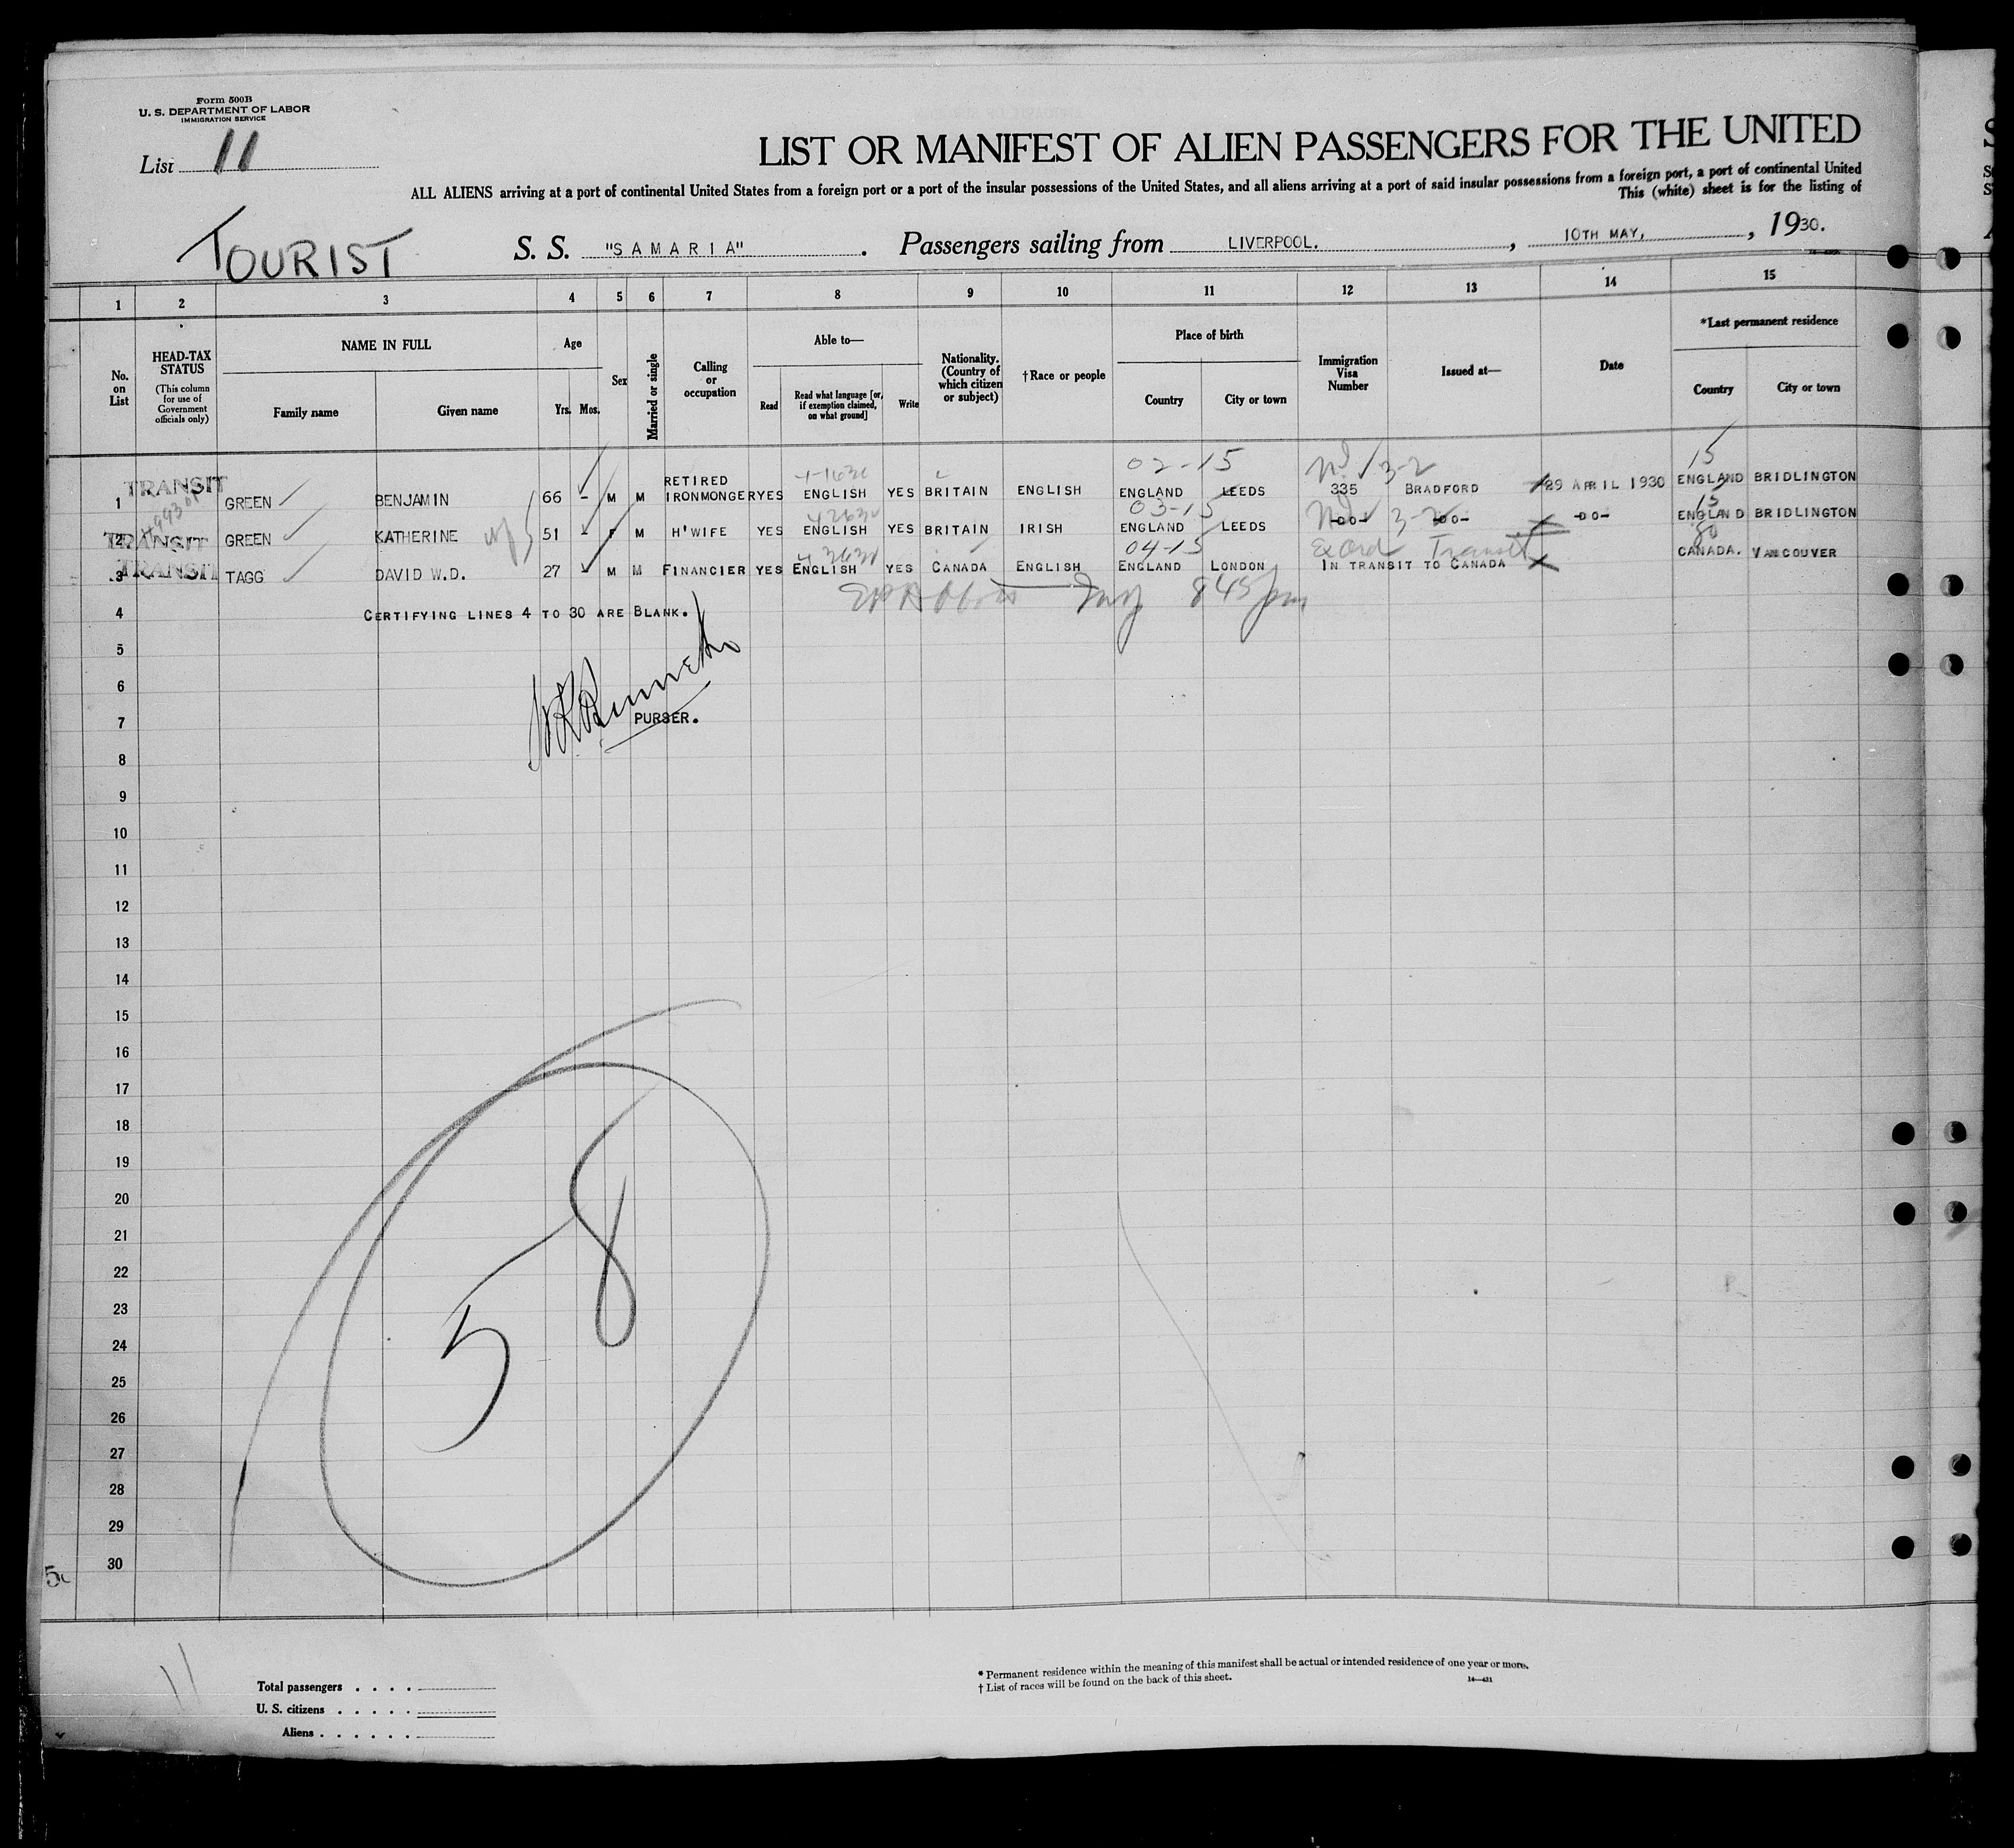 Form 500B
U. S. DEPARTMENT OF LABOR
IMMIGRATION SERVICE
List 11
LIST OR MANIFEST OF ALIEN PASSENGERS FOR THE UNITED
ALL ALIENS arriving at a port of continental United States from a foreign port or a port of the insular possessions of the United States, and all aliens arriving at a port of said insular possessions from a foreign port, a port of continental United
This (white) sheet is for the listing of
TOURIST
S. S. "SAMARIA". Passengers sailing from LIVERPOOL. , 10TH MAY, , 1930.
1 2 3 4 5 6 7 8 9 10 11 12 13 14 15
No. on List
HEAD-TAX STATUS (This column for use of Government officials only)
NAME IN FULL
Family name Given name
Age
Yrs. Mos.
Sex
Married or single
Calling or occupation
Able to—
Read Read what language [or, if exemption claimed, on what ground] Write
Nationality. (Country of which citizen or subject)
†Race or people
Place of birth
Country City or town
Immigration Visa Number
Issued at—
Date
*Last permanent residence
Country City or town
02-15 3-2 15
1 TRANSIT GREEN BENJAMIN 66 - M M RETIRED IRONMONGER YES ENGLISH YES BRITAIN ENGLISH ENGLAND LEEDS 335 BRADFORD 29 APRIL 1930 ENGLAND BRIDLINGTON
03-15 3-2 15
2 TRANSIT GREEN KATHERINE wf 51 - F M H'WIFE YES ENGLISH YES BRITAIN IRISH ENGLAND LEEDS -DO- -DO- -DO- ENGLAND BRIDLINGTON
04-15 Transit 80
3 TRANSIT TAGG DAVID W.D. 27 - M M FINANCIER YES ENGLISH YES CANADA ENGLISH ENGLAND LONDON IN TRANSIT TO CANADA CANADA. VANCOUVER
845 pm
4 CERTIFYING LINES 4 TO 30 ARE BLANK.
5
6
7 PURSER.
8
9
10
11
12
13
14
15
16
17
18
19
20
21
22
23
24
25
26
27
28
29
30
58
11
Total passengers . . . .
U. S. citizens . . . . .
Aliens . . . . . .
* Permanent residence within the meaning of this manifest shall be actual or intended residence of one year or more.
† List of races will be found on the back of this sheet.
14—431